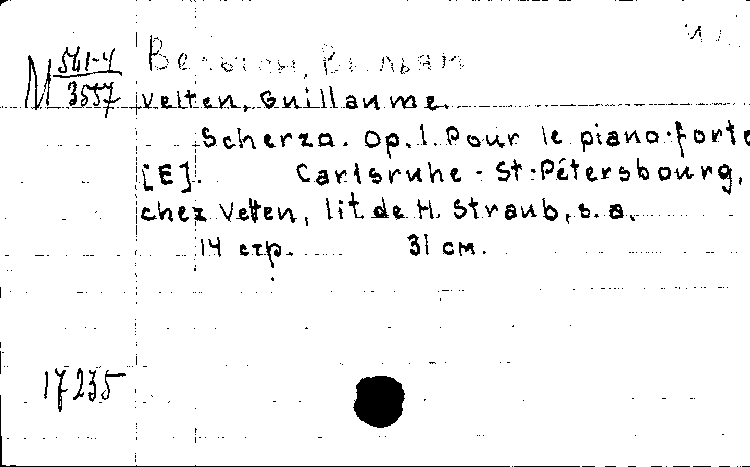 М 541-4
3557
Вельтен, Вильям
Velten, Guillaume.
Scherzo. Op.1. Pour le piano-forte
[E]. Carlsruhe - St-Pétersbourg,
chez Velten, lit de H. Straub, s.a.
14 стр. 31 см.
17235